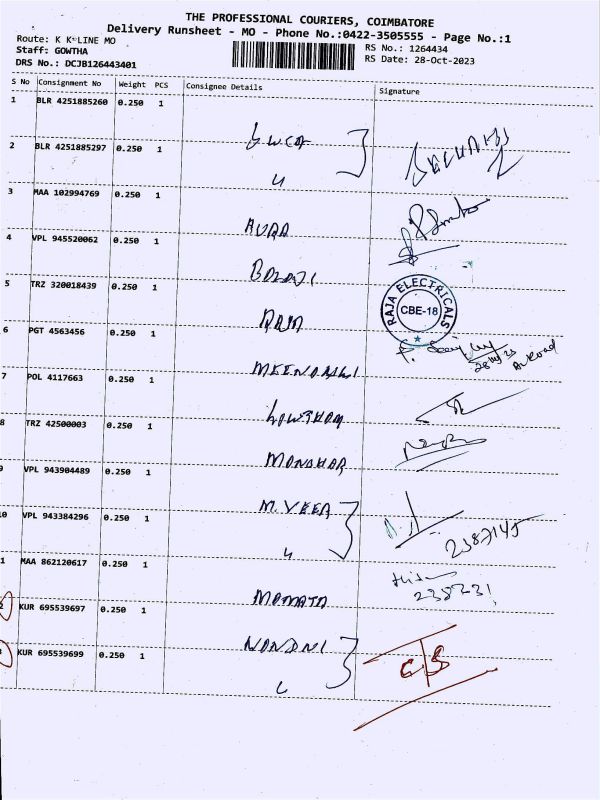 THE PROFESSIONAL COURIERS, COIMBATORE
Delivery Runsheet - MO - Phone No.:0422-3505555 - Page No.:1
Route: K K LINE MO
Staff: GOWTHA
DRS No.: DCJB126443401
RS No.: 1264434
RS Date: 28-Oct-2023
S No Consignment No Weight PCS Consignee Details Signature
1 BLR 4251885260 0.250 1
2 BLR 4251885297 0.250 1
3 MAA 102994769 0.250 1
4 VPL 945520062 0.250 1
BALAJI
5 TRZ 320018439 0.250 1
RAJA
RAJA ELECTRICALS
CBE-18
6 PGT 4563456 0.250 1
MEENAKSHI
7 POL 4117663 0.250 1
GOWTHAM
8 TRZ 42500003 0.250 1
MANOHAR
9 VPL 943904489 0.250 1
M. VEER
10 VPL 943384296 0.250 1
1 MAA 862120617 0.250 1
MAMATA
2 KUR 695539697 0.250 1
NANDNI
KUR 695539699 0.250 1